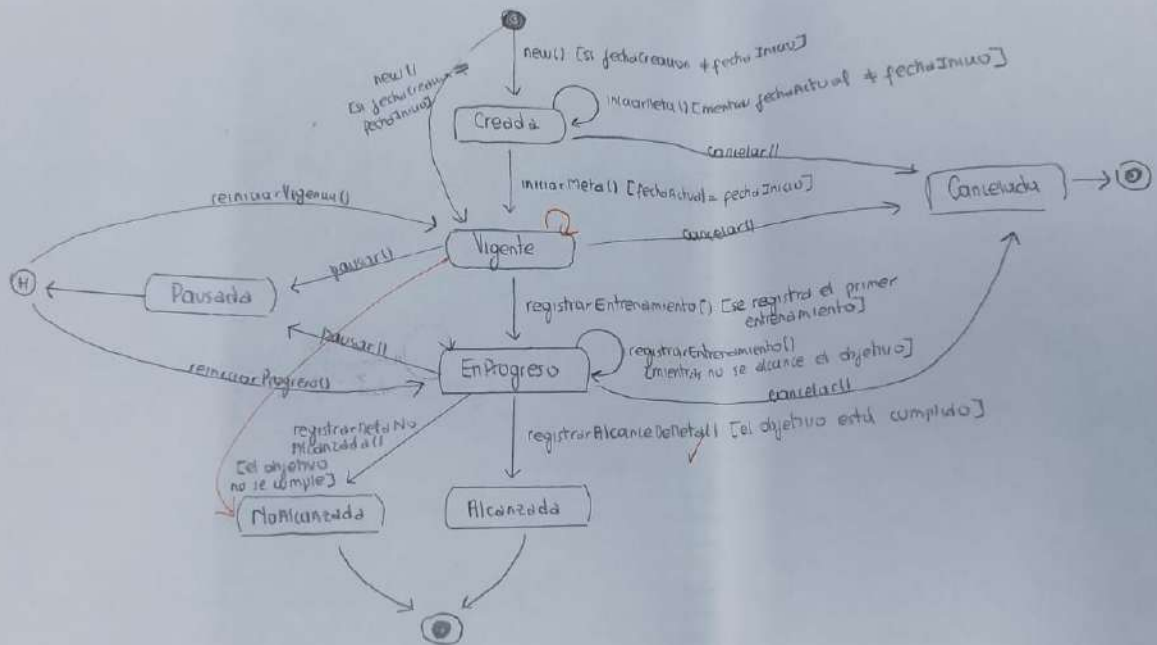 new() [si fechaCreacion ≠ fechaInicio]
new()
[si fechaCreacion =
fechaInicio]
iniciarMeta() [mientras fechaActual ≠ fechaInicio]
Creada
cancelar()
iniciarMeta() [fechaActual = fechaInicio]
Cancelada
reiniciarVigencia()
Vigente
cancelar()
pausar()
H
Pausada
registrarEntrenamiento() [se registra el primer
entrenamiento]
pausar()
registrarEntrenamiento()
[mientras no se alcance el objetivo]
EnProgreso
reiniciarProgreso()
cancelar()
registrarMetaNo
Alcanzada()
[el objetivo
no se cumple]
registrarAlcanceDeMeta() [el objetivo está cumplido]
NoAlcanzada
Alcanzada